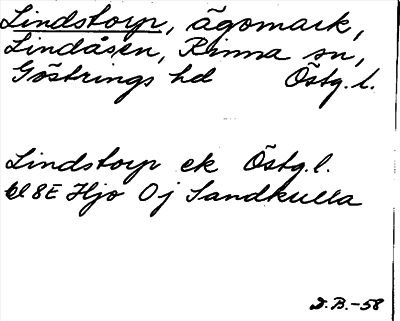 Lindstorp, ägomark,
Lindåsen, Rinna sn,
Göstrings hd Östg.l.
Lindstorp ek Östg.l.
bl 8E Hjo 0j Sandkulla
D.B.-58